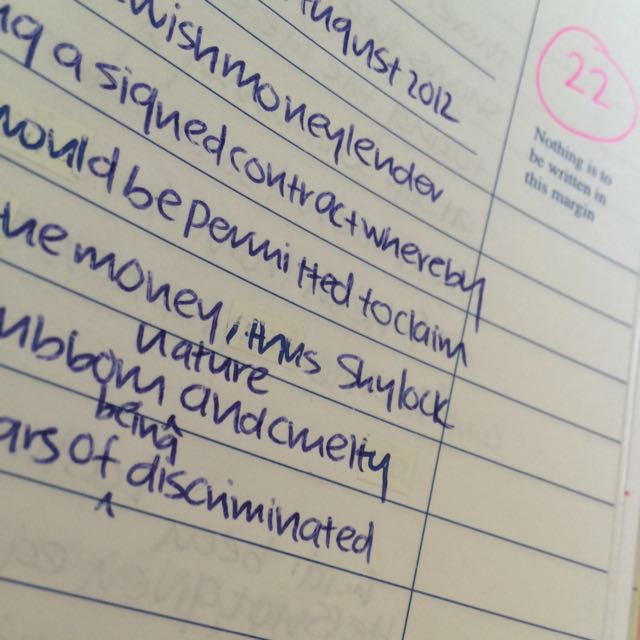 August 2012
wish moneylender
a signed contract whereby
would be permitted to claim
money, thus Shylock
nature
and cruelty
being
of discriminated
22
Nothing is to
be written in
this margin